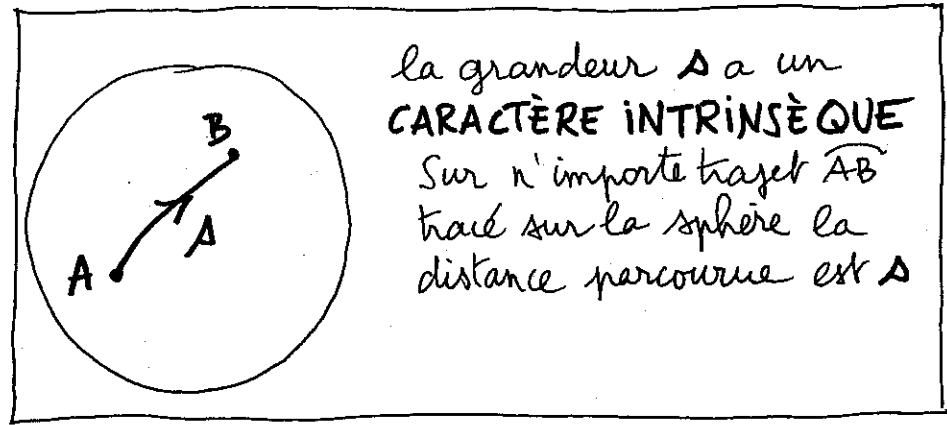 la grandeur s a un
CARACTÈRE INTRINSÈQUE
Sur n'importe trajet AB
tracé sur la sphère la
distance parcourue est s
B
s
A